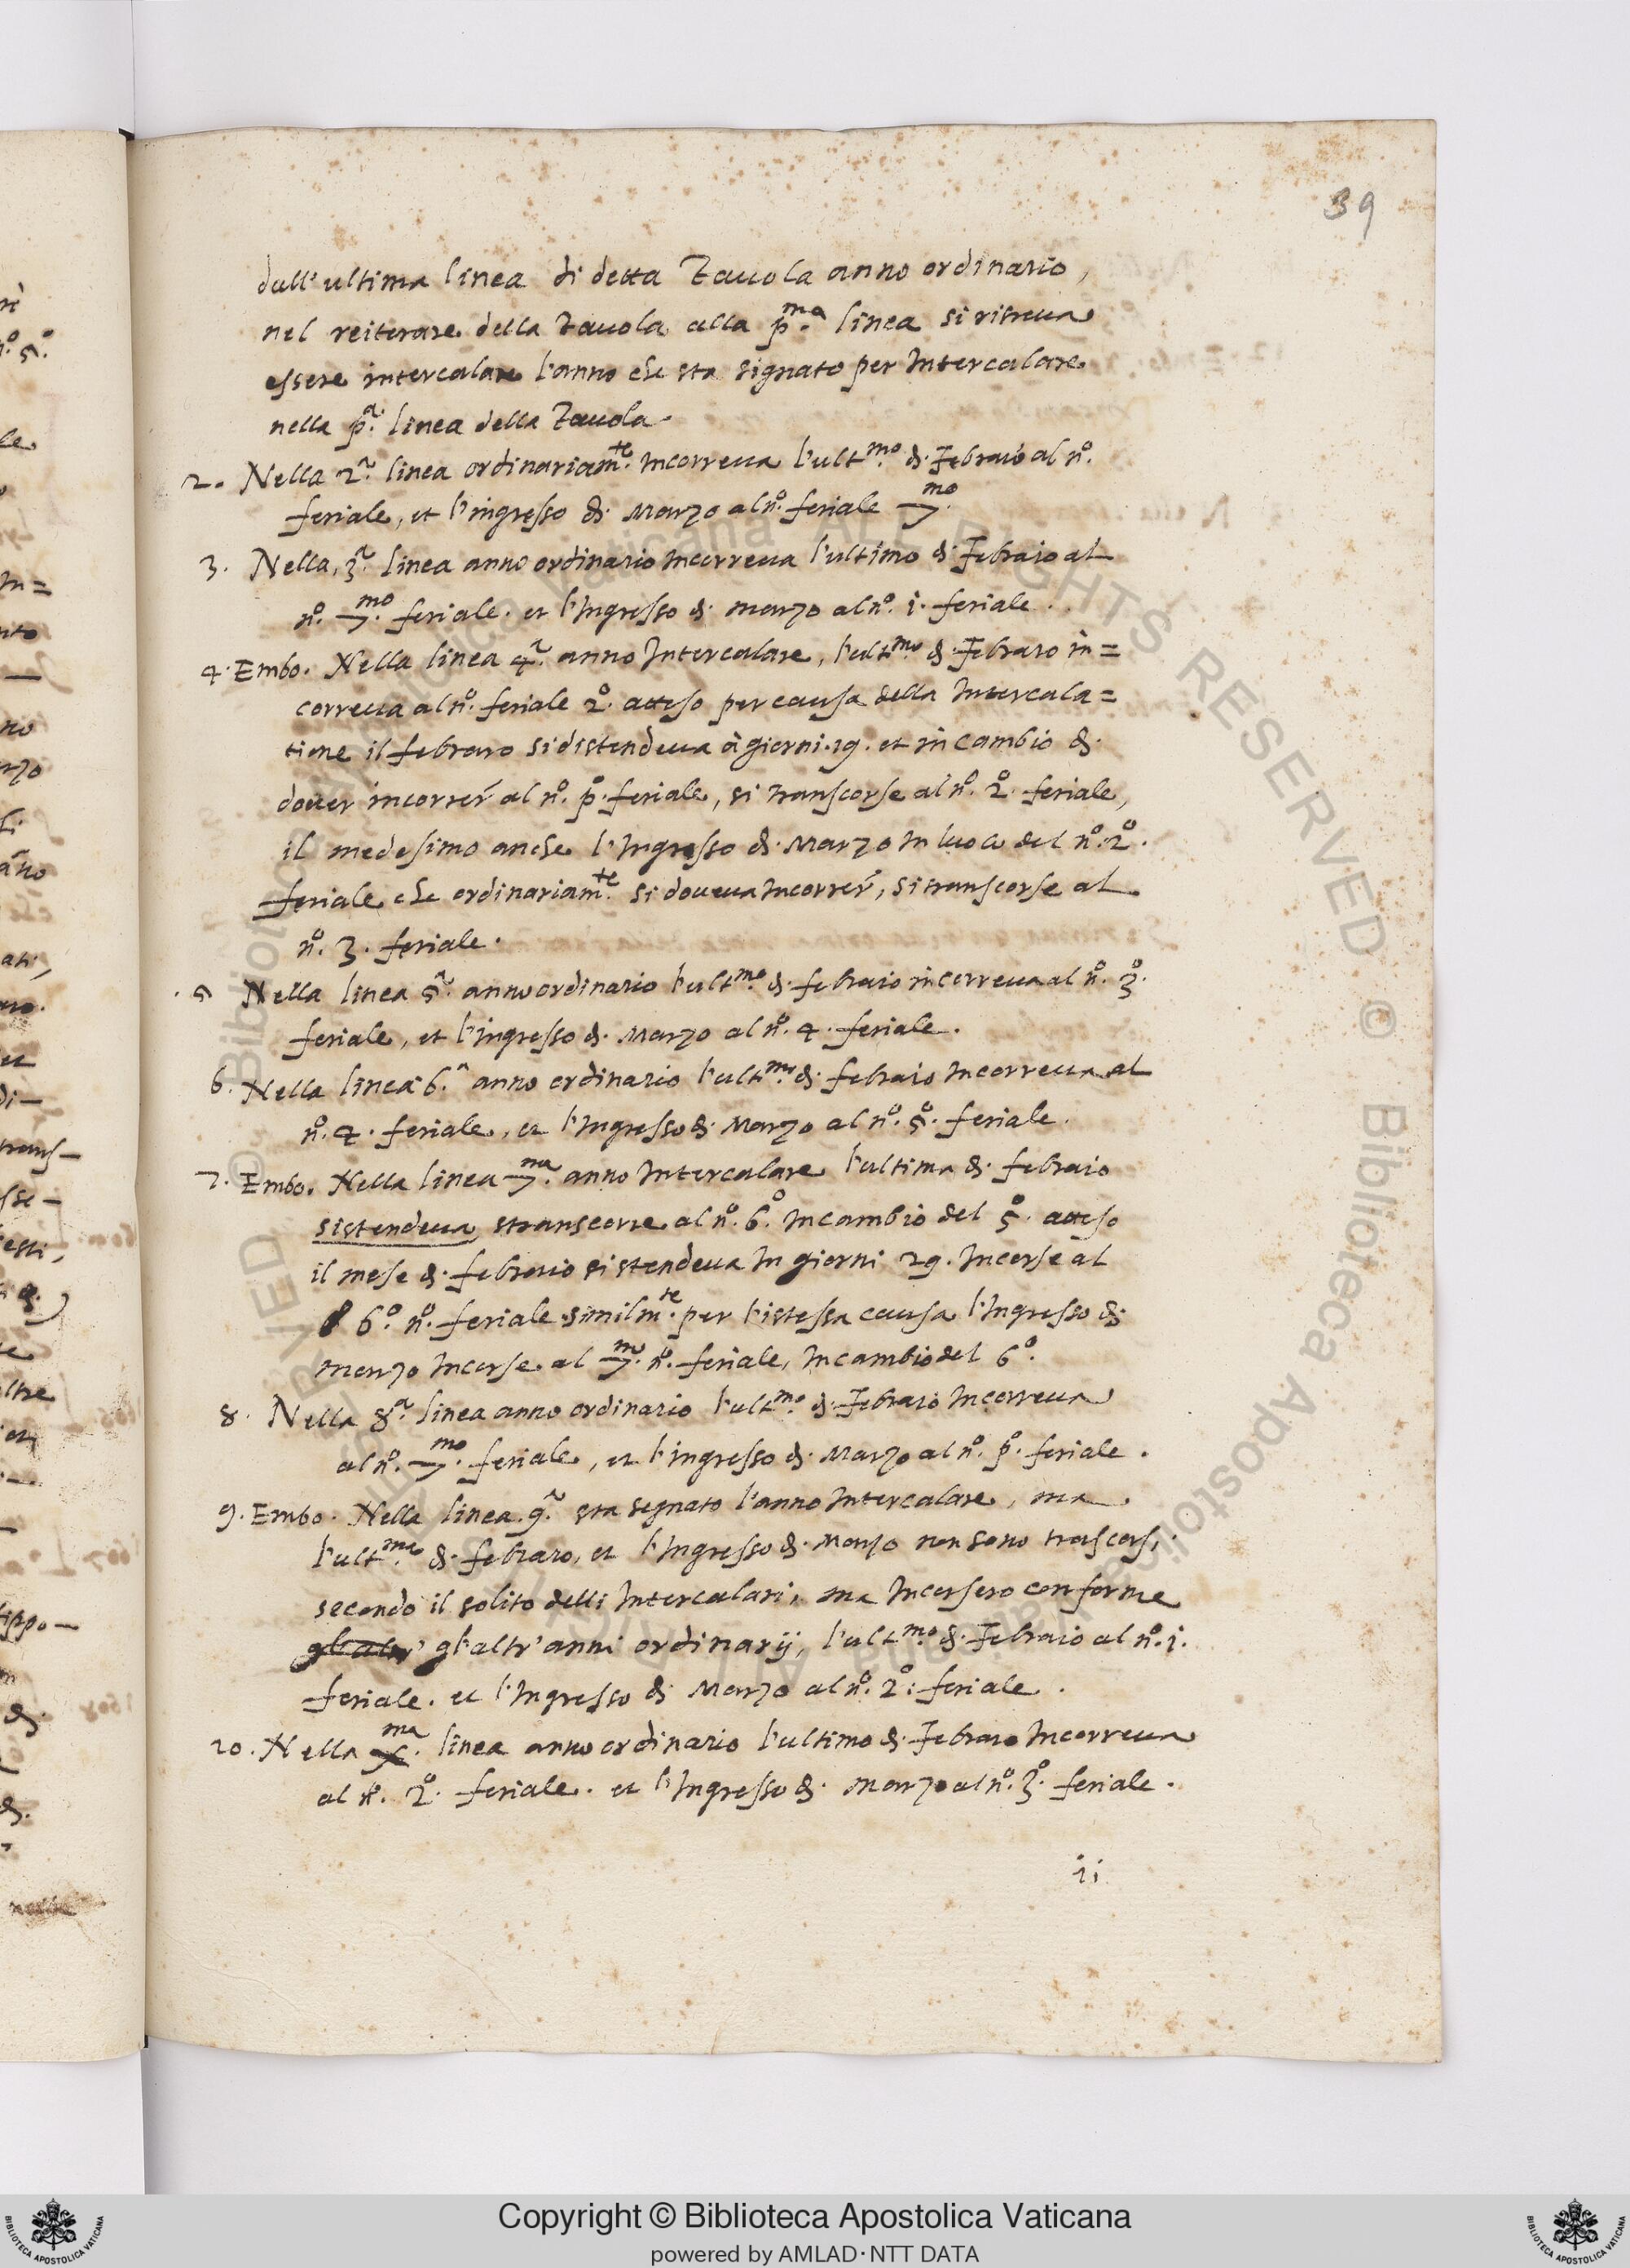 39
dall'ultima linea di detta Tauola anno ordinario,
nel reiterare della Tauola alla p.ma linea si ritroua
essere intercalare l'anno che sta signato per Intercalare
nella p.a linea della Tauola.
2. Nella 2.a linea ordinariam.te Incorreua l'ult.mo di Febraio al n.o
feriale, et l'ingresso di Marzo al n.o feriale 7.mo
3. Nella 3.a linea anno ordinario Incorreua l'ultimo di Febraio al
n.o 7.mo feriale. et l'Ingresso di marzo al n.o i. feriale.
4. Embo. Nella linea 4.a anno Intercalare, l'ult.mo di Febraro in=
correua al n.o feriale 2.o atteso per causa della Intercala=
tione il febraro si distendeua à giorni .29. et in cambio di
douer incorrer al n.o p.o feriale, si transcorse al n.o 2.o feriale,
il medesimo anche l'Ingresso di Marzo In luoco del n.o 2.o
feriale che ordinariam.te si doueua Incorrer, si transcorse al
n.o 3. feriale.
5 Nella linea 5.a anno ordinario l'ult.mo di febraio incorreua al n.o 3.o
feriale, et l'ingresso di Marzo al n.o 4. feriale.
6. Nella linea 6.a anno ordinario l'ult.mo di febraio Incorreua al
n.o 4. feriale, et l'Ingresso di Marzo al n.o 5.o feriale.
7. Embo. Nella linea 7.ma anno Intercalare l'ultima di febraio
sistendeua stranscorre al n.o 6.o In cambio del 5.o atteso
il mese di febraio si stendeua In giorni 29. Incorse al
6.o n.o feriale similm.te per l'istessa causa l'Ingresso di
marzo Incorse al 7.mo n.o feriale, In cambio del 6.o
8. Nella 8.a linea anno ordinario l'ult.mo di Febraio Incorreua
al n.o 7.mo feriale, et l'ingresso di Marzo al n.o p.o feriale.
9. Embo. Nella linea .9.a sta segnato l'anno Intercalare, ma
l'ult.mo di febraro, et l'Ingresso di Marzo non sono trascorsi
secondo il solito delli Intercalari, ma Incorsero conforme
gl'altr' anni ordinarij, l'ult.mo di Febraio al n.o i.
feriale. et l'Ingresso di Marzo al n.o 2.o feriale.
10. Nella X.ma linea anno ordinario l'ultimo di Febraro Incorreua
al n. 2.o feriale. et l'Ingresso di Marzo al n.o 3.o feriale.
ii
© Biblioteca Apostolica Vaticana ALL RIGHTS RESERVED
Copyright © Biblioteca Apostolica Vaticana
powered by AMLAD·NTT DATA
BIBLIOTECA APOSTOLICA VATICANA
BIBLIOTECA APOSTOLICA VATICANA